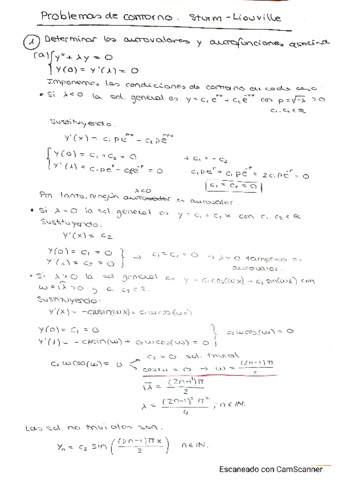 Problemas de contorno. Sturm-Liouville
① Determinar los autovalores y autofunciones asocia
(a) { y'' + λy = 0
y(0) = y'(1) = 0
Imponemos las condiciones de contorno en cada caso
• Si λ<0 la sol general es y = c₁e^px + c₂e^-px con p = √-λ > 0
c₁, c₂ ∈ ℝ
Sustituyendo:
y'(x) = c₁pe^px - c₂pe^-px
{ y(0) = c₁ + c₂ = 0 → c₁ = -c₂
y'(1) = c₁pe^p - c₂pe^-p = 0
c₁ = c₂ = 0
Por tanto, ningún λ<0 es autovalor
• Si λ = 0 la sol general es y = c₁ + c₂x con c₁, c₂ ∈ ℝ
Sustituyendo:
y'(x) = c₂
y(0) = c₁ = 0
y'(1) = c₂ = 0 } → c₁ = c₂ = 0 → λ = 0 tampoco es autovalor.
• Si λ>0 la sol general es y = c₁cos(ωx) + c₂sin(ωx) con
ω = √λ > 0 y c₁, c₂ ∈ ℝ
Sustituyendo:
y'(x) = -c₁ωsin(ωx) + c₂ωcos(ωx)
y(0) = c₁ = 0
y'(1) = -c₁ωsin(ω) + c₂ωcos(ω) = 0 } c₂ωcos(ω) = 0
c₂ωcos(ω) = 0 < c₂ = 0 sol. trivial
cosω = 0 → ω = (2n-1)π/2
√λ = (2n-1)π/2
λ = (2n-1)²π²/4 ; n∈ℕ.
Las sol. no triviales son:
yₙ = c₂ sin((2n-1)πx/2) n∈ℕ.
Escaneado con CamScanner